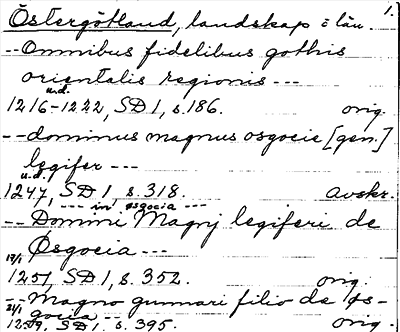 1.
Östergötland, landskap o län.
-- Omnibus fidelibus gothis
orientalis regionis ---
u.d.
1216-1222, SD 1, s. 186. orig.
-- dominus magnus osgocie [gen.]
legifer ---
u.d.
1247, SD 1, s. 318. avskr.
--- in osgocia ---
-- Domini Magnj legiferi de
Øsgocia ---
17/1
1251, SD 1, s. 352. orig.
-- Magno gunnari filio de øs-
gocia --
21/1
1259, SD 1, s. 395. orig.